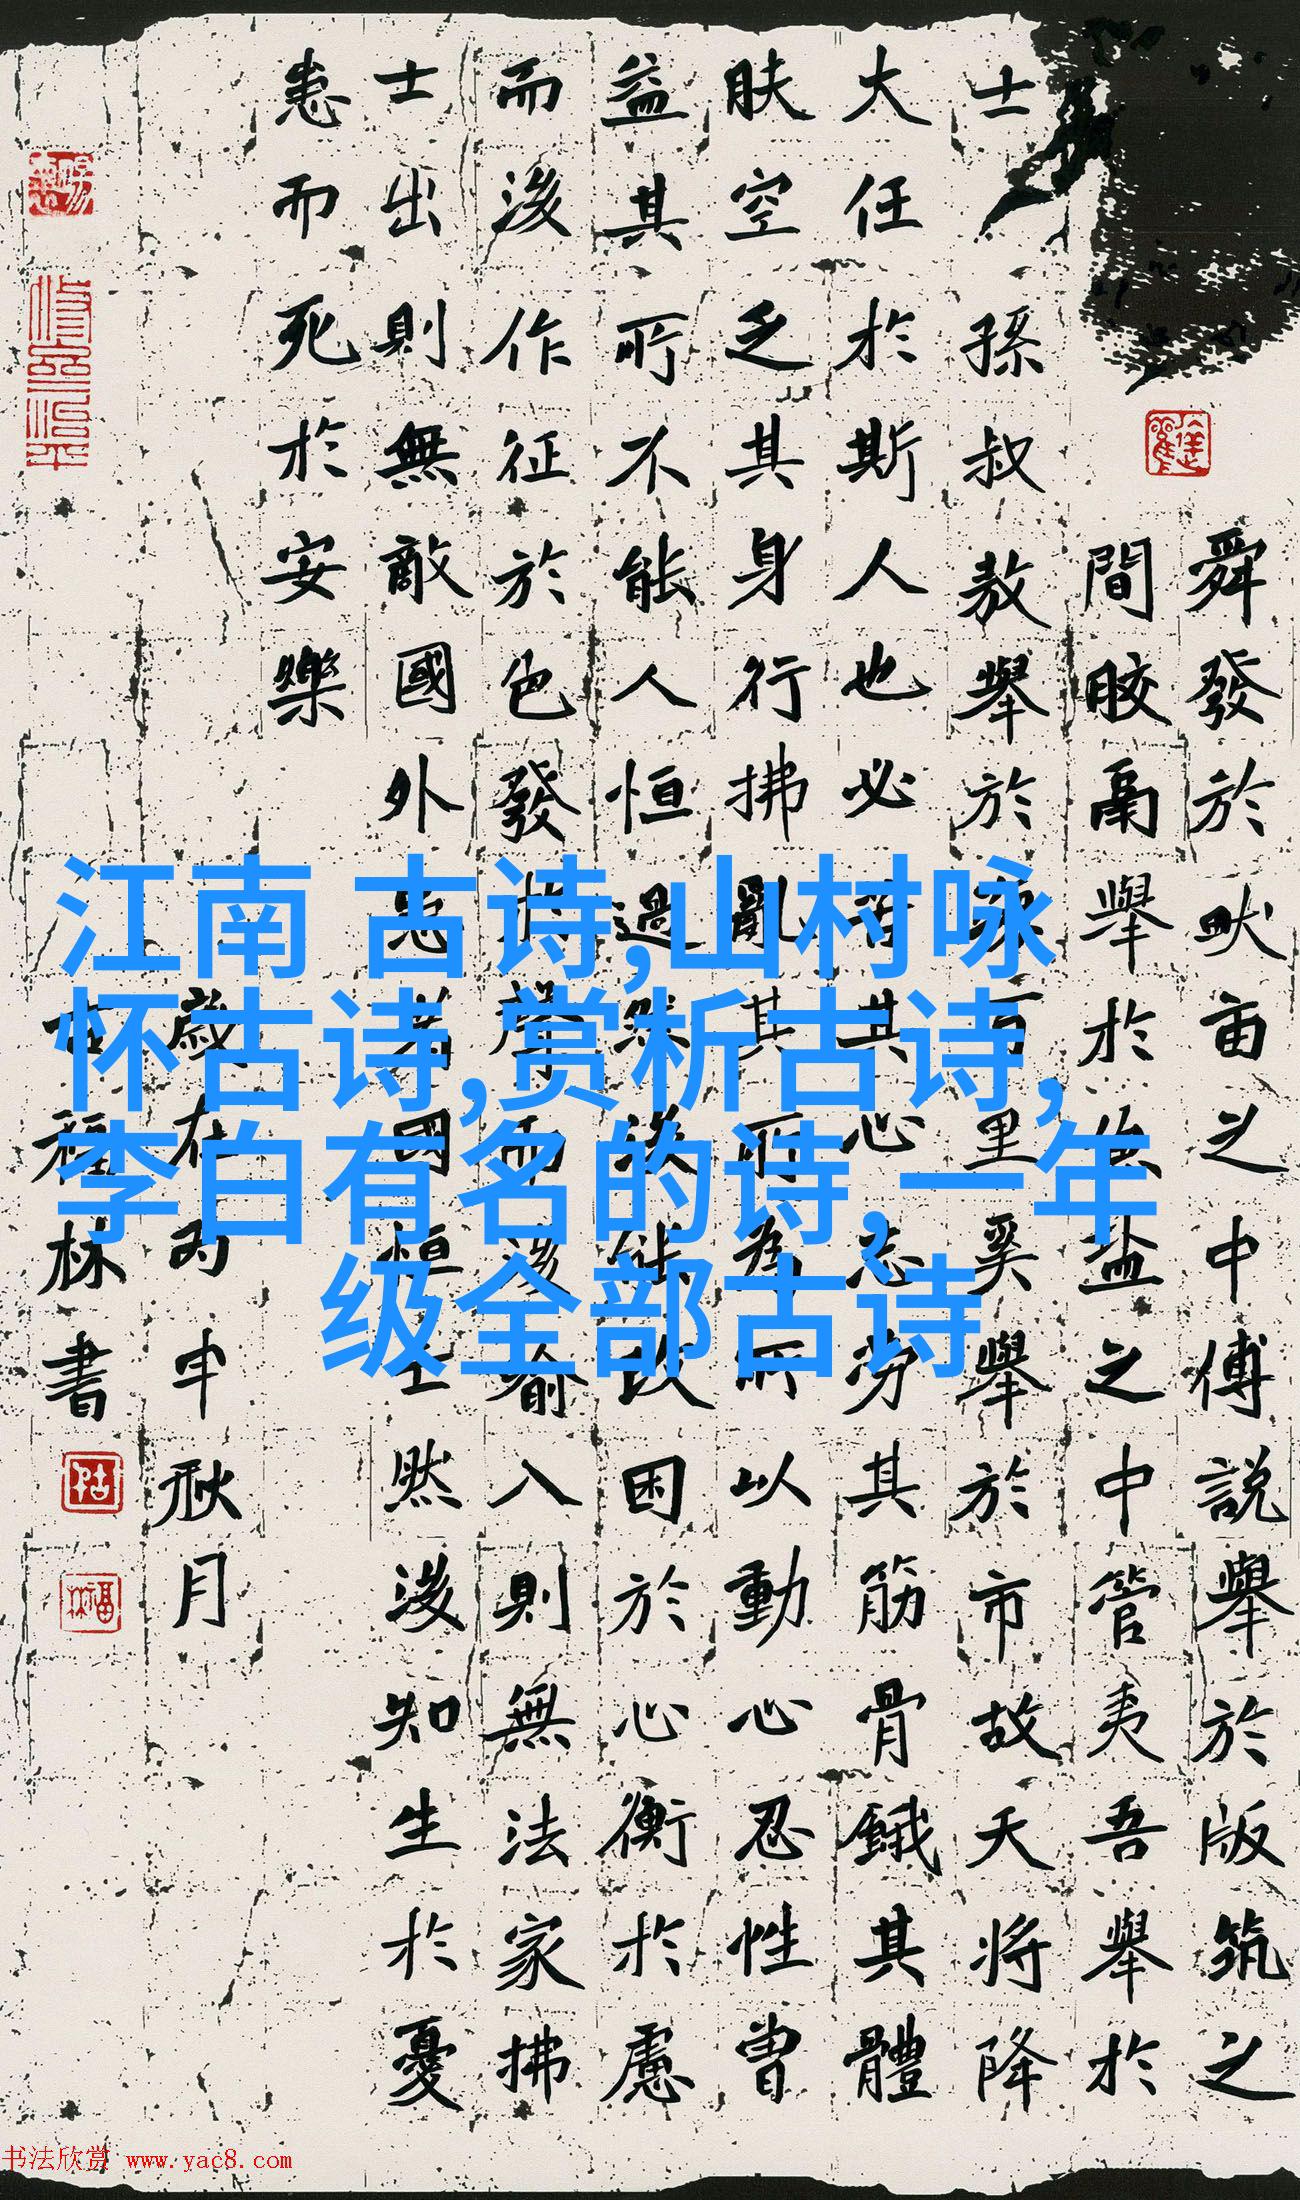 舜發於畎亩之中傅説舉於版筑之
間膠鬲舉於盐之中管夷吾舉於
士孫叔敖舉於海百里奚舉於市故天將降
大任於斯人也必苦其心志劳其筋骨餓其體
肤空乏其身行拂亂其所為所以動心忍性曾
益其所不能人恒過然後能改困於心衡於慮
而後作征於色發於聲而後喻入則無法家拂
士出則無敵國外患者國恒亡然後知生於憂
患而死於安樂
歲在丙申秋月
古福林書
江南 古诗,山村咏
怀古诗,赏析古诗,
李白有名的诗,一年
级全部古诗
书法欣赏 www.yac8.com